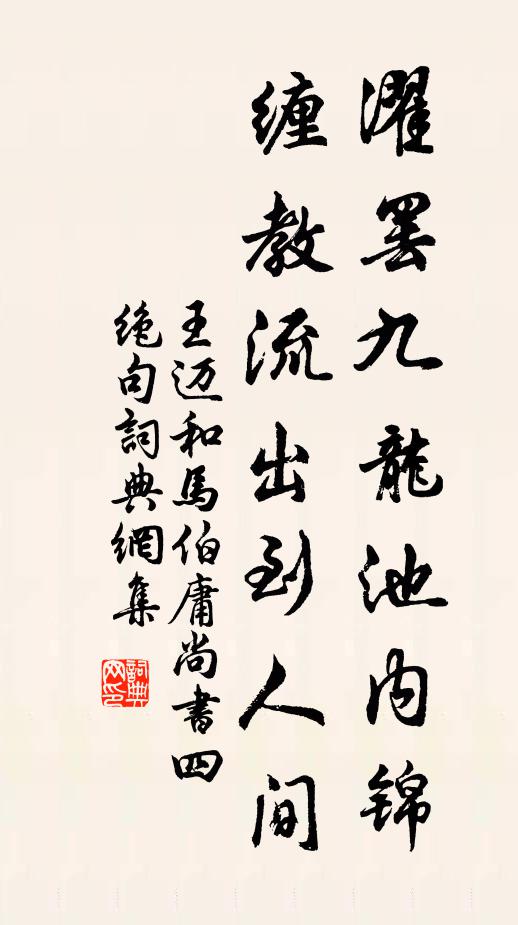 濯罢九龍池内錦
缠教流出到人间
王迈和馬伯庸尚書四
絶句詞典網集
詞典网印